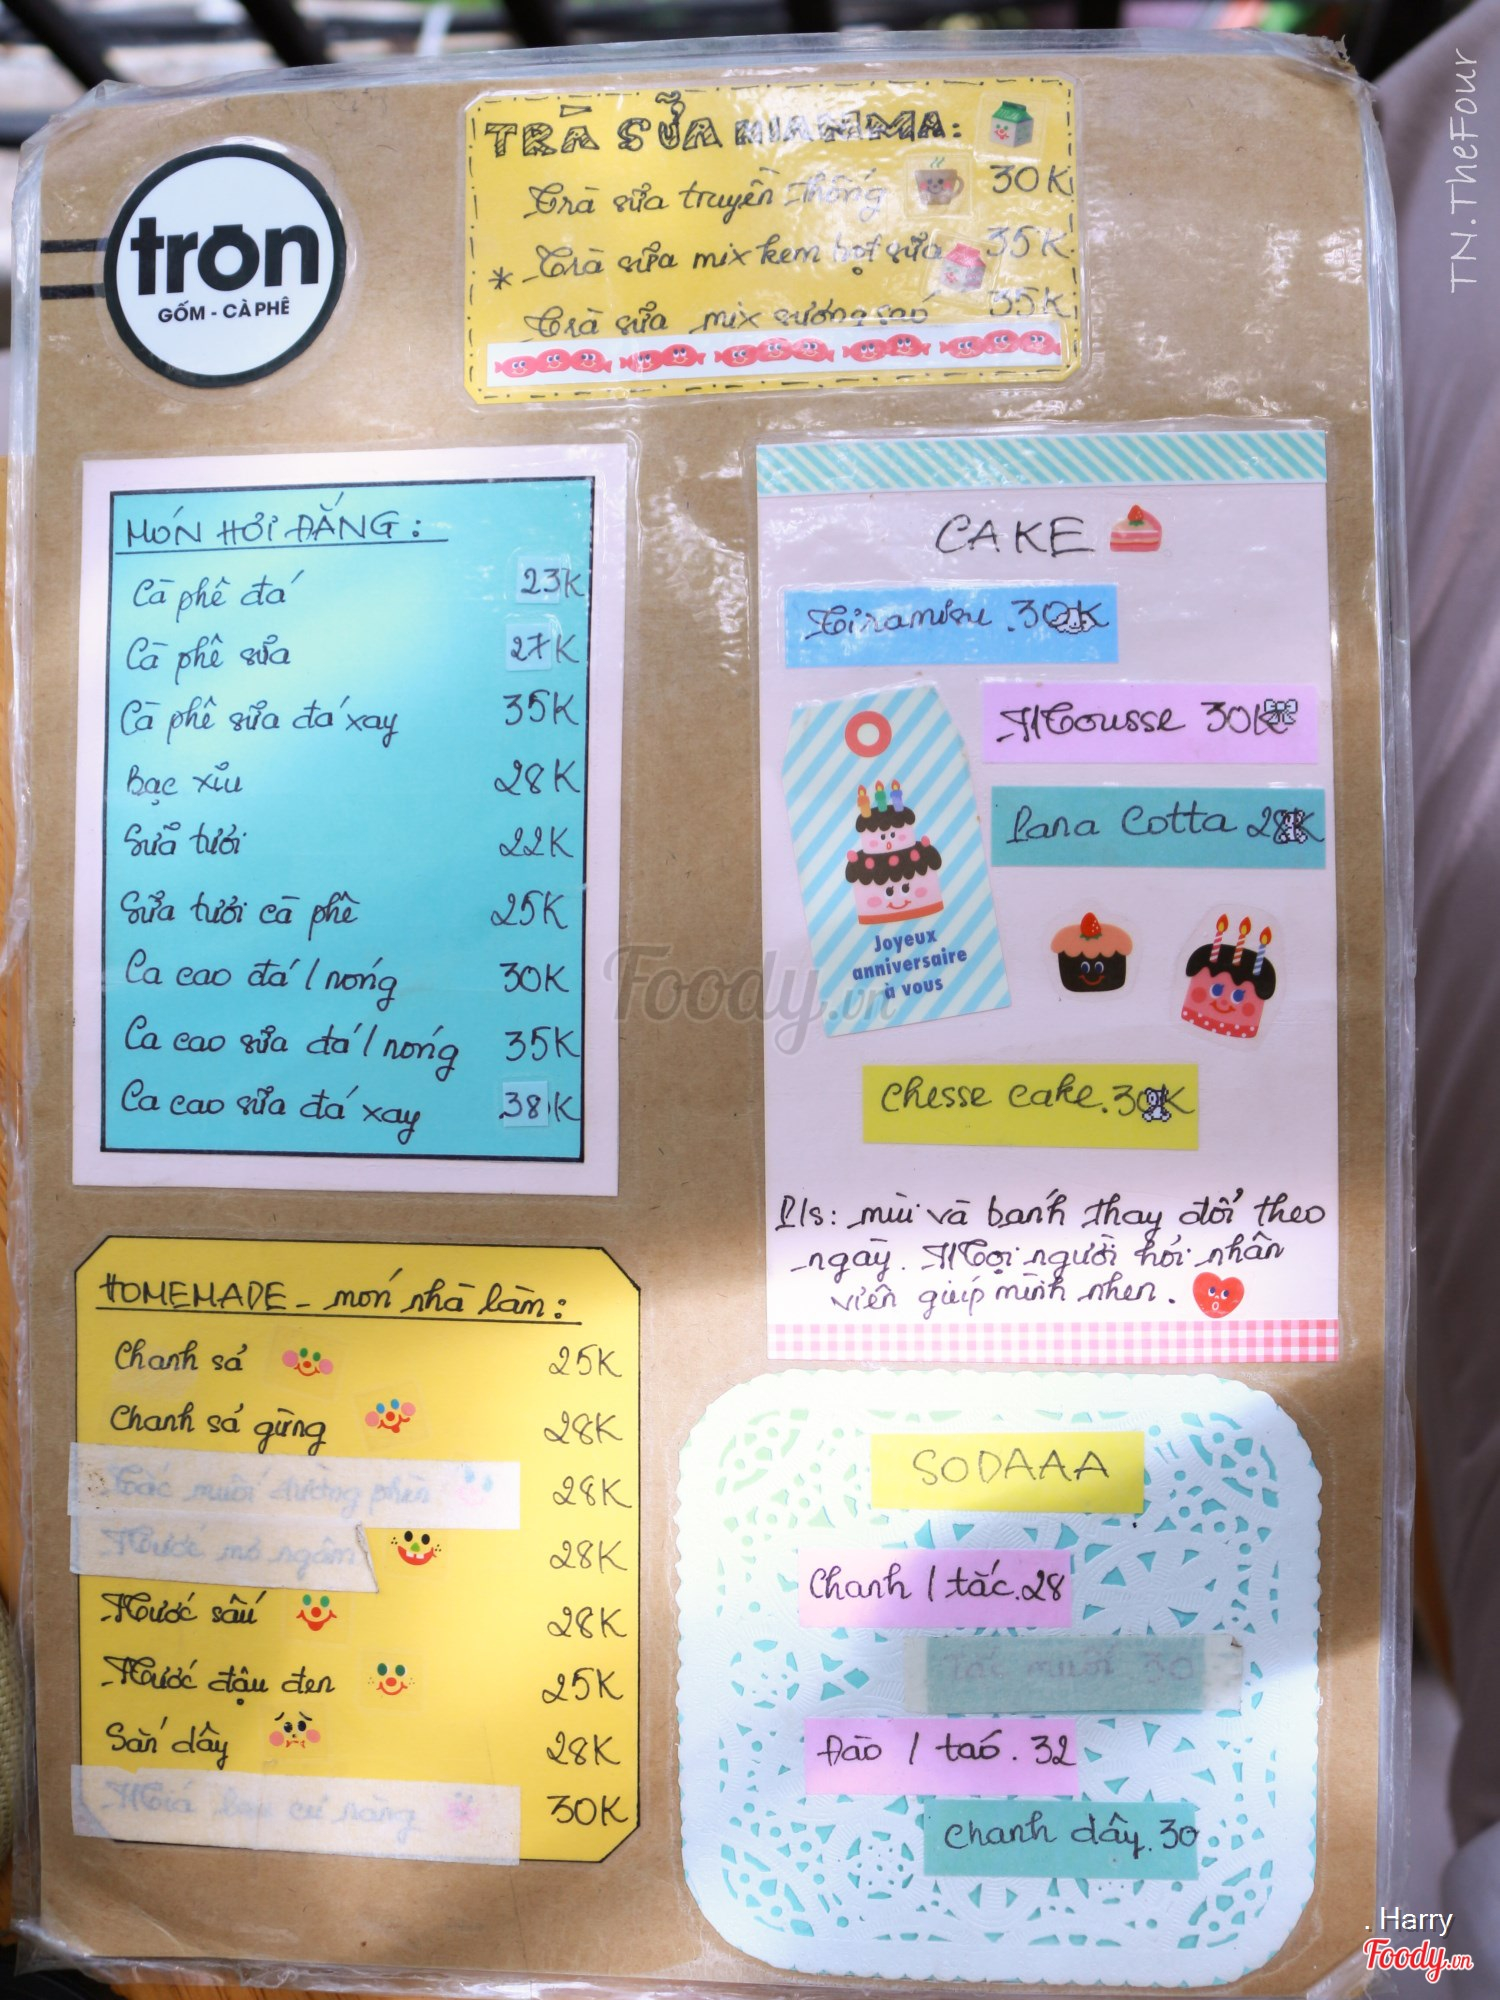 tròn
GỐM - CÀ PHÊ
TRÀ SỮA NIAMMA:
Trà sữa truyền thống 30K
* Trà sữa mix kem bọt sữa 35K
Trà sữa mix sương sáo 35K
MÓN HƠI ĐẮNG:
Cà phê đá 23K
Cà phê sữa 27K
Cà phê sữa đá xay 35K
Bạc xỉu 28K
Sữa tươi 22K
Sữa tươi cà phê 25K
Ca cao đá / nóng 30K
Ca cao sữa đá / nóng 35K
Ca cao sữa đá xay 38K
CAKE
Tiramisu . 30K
Mousse 30K
Pana Cotta 28K
Joyeux
anniversaire
à vous
Chesse cake. 30K
P/s: mùi và bánh thay đổi theo
ngày. Mọi người hỏi nhân
viên giúp mình nhen.
HOMEMADE - món nhà làm:
Chanh sả 25K
Chanh sả gừng 28K
Tắc muối đường phèn 28K
Nước mơ ngâm 28K
Nước sấu 28K
Nước đậu đen 25K
Sắn dây 28K
30K
SODAAA
Chanh / tắc. 28
Tắc muối 30
Đào / táo. 32
Chanh dây. 30
Foody.vn
TN.TheFour
. Harry
Foody.vn